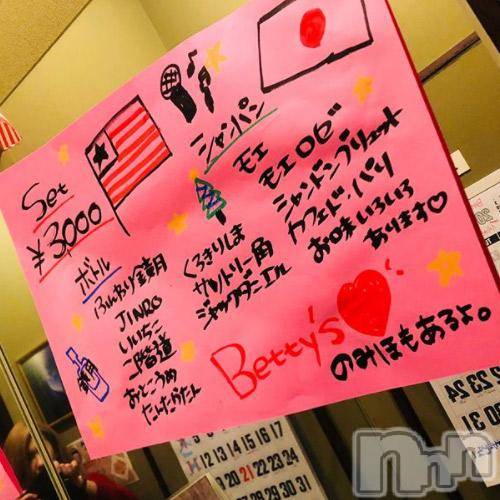 Set
¥3000
ボトル
ふんわり鏡月
JINRO
いいちこ
二階道
おとこうめ
たんたかたん
くろきりしま
サントリー角
ジャックダニエル
シャンパン
モエ
モエ ロゼ
シャンドンブリュット
カフェドパリ
お味いろいろ
あります♡
Betty's
のみほもあるよ。
12 13 14 15 16 17
19 20 21 22 23 24
22 23 24
29 30 31